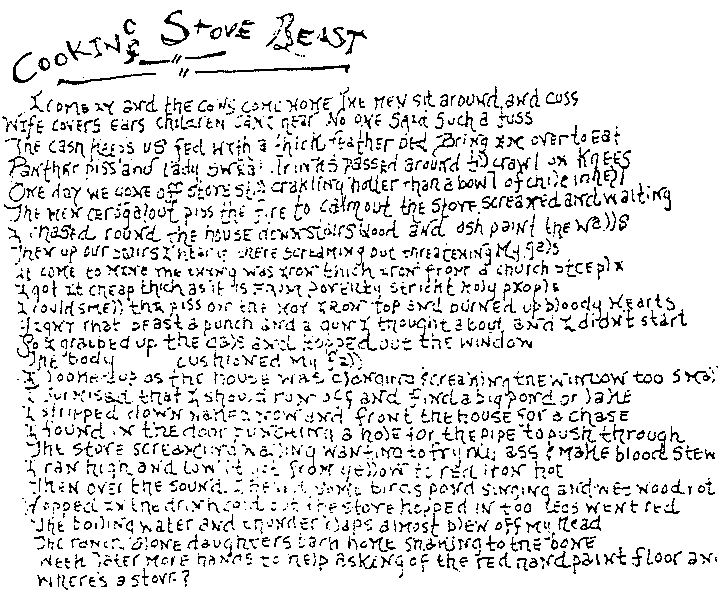 COOKING STOVE BEAST
and the cows come home the men sit around and cuss
Wife covers ears children can't hear No one said such a fuss
The cash keeps us fed with a thick feather bed Bring over to Eat
Panther piss and lady sweat drinks passed around to crawl on knees
One day we come off stove still crackling hotter than a bowl of chile in hell
The men piss the fire to calm out the stove screamed and waiting
I chased round the house down stairs blood and ash paint the walls
Then up our stairs I hear it there screaming out threatening My gals
it come to mind the thing was iron thick iron from a church steeple
I got it cheap thick as it is from poverty strickt holy people
I could smell the piss on the hot iron top and burned up bloody hearts
that beast a punch and a gun I thought about and I didn't start
So I grabbed up the gals and hopped out the window
The body cushioned my fall
I looked up as the house was clanging screaming the window too small
I surmised that I should run off and find a big pond or lake
I stripped down naked now and front the house for a chase
I found in the door punching a hole for the pipe to push through
The stove screaming wailing wanting to fry my ass & make blood stew
I ran high and low it got from yellow to red iron hot
Then over the sound some birds pond singing and wet wood rot
Hopped in the stove hopped in too legs went red
The boiling water and thunder claps almost blew off my head
The daughters back home shaking to the bone
Week later more hands to help asking of the red hand paint floor and
Where's a stove?